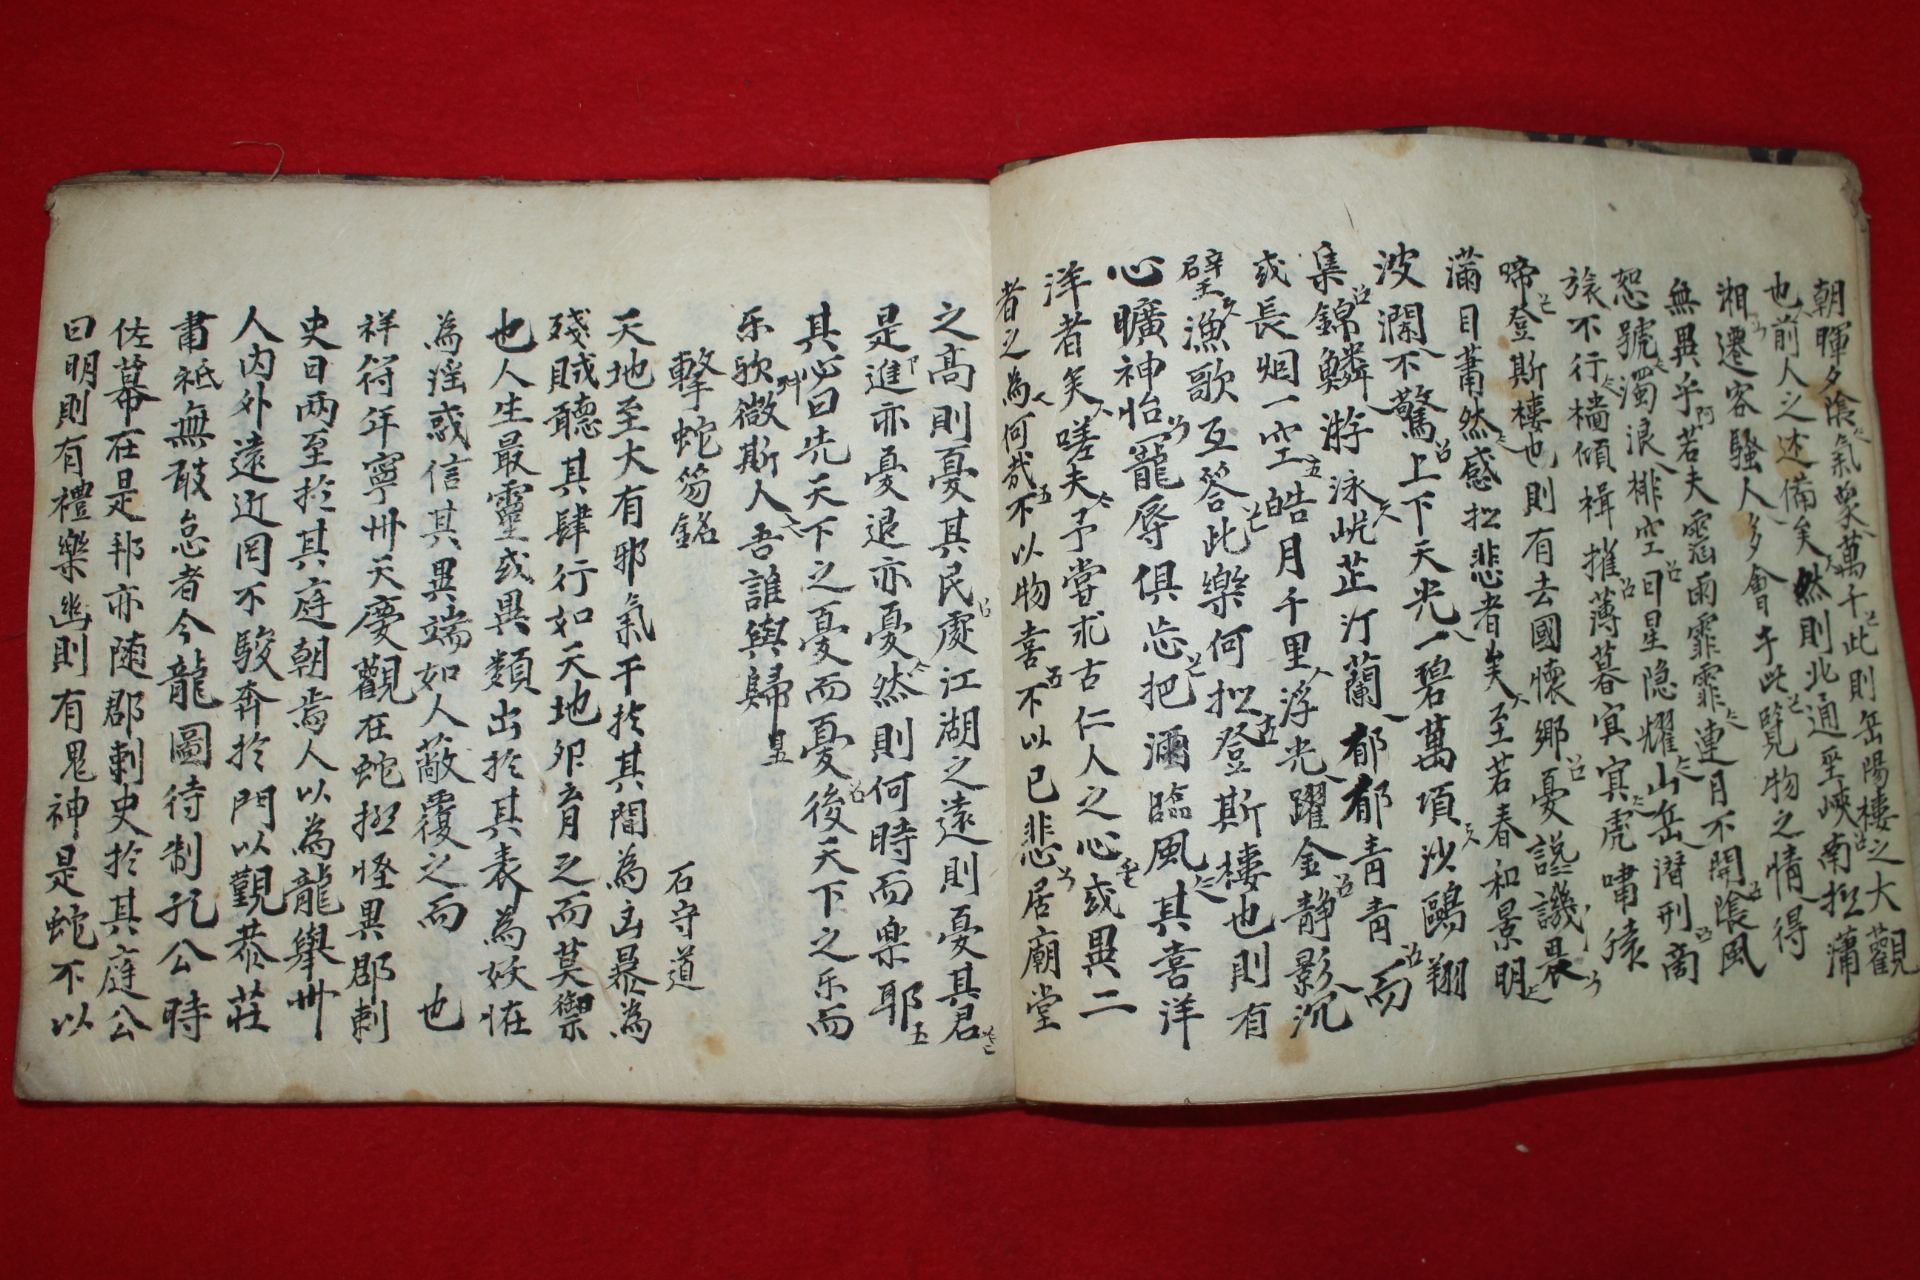 朝暉夕陰氣象萬千此則岳陽樓之大觀
也前人之述備矣然則北通巫峽南極瀟
湘遷客騷人多會于此覽物之情得
無異乎若夫霪雨霏霏連月不開陰風
怒號濁浪排空日星隐耀山岳潜形商
旅不行檣傾楫摧薄暮冥冥虎嘯猿
啼登斯樓也則有去國懷鄉憂讒譏畏
滿目蕭然感極悲者矣至若春和景明
波瀾不驚上下天光一碧萬頃沙鷗翔
集錦鱗游泳岸芷汀蘭郁郁青青而
或長烟一空皓月千里浮光躍金静影沉
璧漁歌互答此樂何極登斯樓也則有
心曠神怡寵辱俱忘把酒臨風其喜洋
洋者矣嗟夫予嘗求古仁人之心或異二
者之為何哉不以物喜不以已悲居廟堂
之高則憂其民處江湖之遠則憂其君
是進亦憂退亦憂然則何時而樂耶
其必曰先天下之憂而憂後天下之乐而
乐歟微斯人吾誰與歸
擊蛇笏銘
石守道
天地至大有邪氣干扵其間為凶暴為
殘賊聽其肆行如天地卵育之而莫禦
也人生最靈或異類出扵其表為妖怪
為滛惑信其異端如人蔽覆之而也
祥符年寧州天慶觀在蛇极怪異郡刺
史日兩至扵其庭朝焉人以為龍舉州
人内外遠近罔不駿奔扵門以觀恭莊
肅祗無敢怠者今龍圖待制孔公時
佐幕在是邦亦随郡刺史扵其庭公
曰明則有禮樂幽則有鬼神是蛇不以